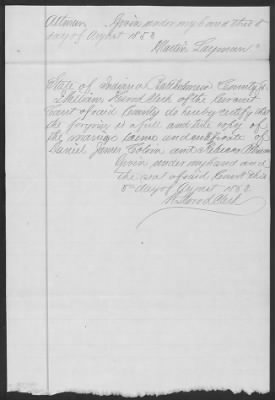 Altman Given under my hand this 5
day of August 1852
Martin Layman
State of Indiana Bartholomew County
I William Hood Clerk of the
Court of said County do hereby certify that
the forgoing is a full and true copy of
the marrige licens and certificate of
Daniel James Colvin and Rebecca
Given under my hand and
the seal of said Court this
5 day of August 1852
W Hood Clerk